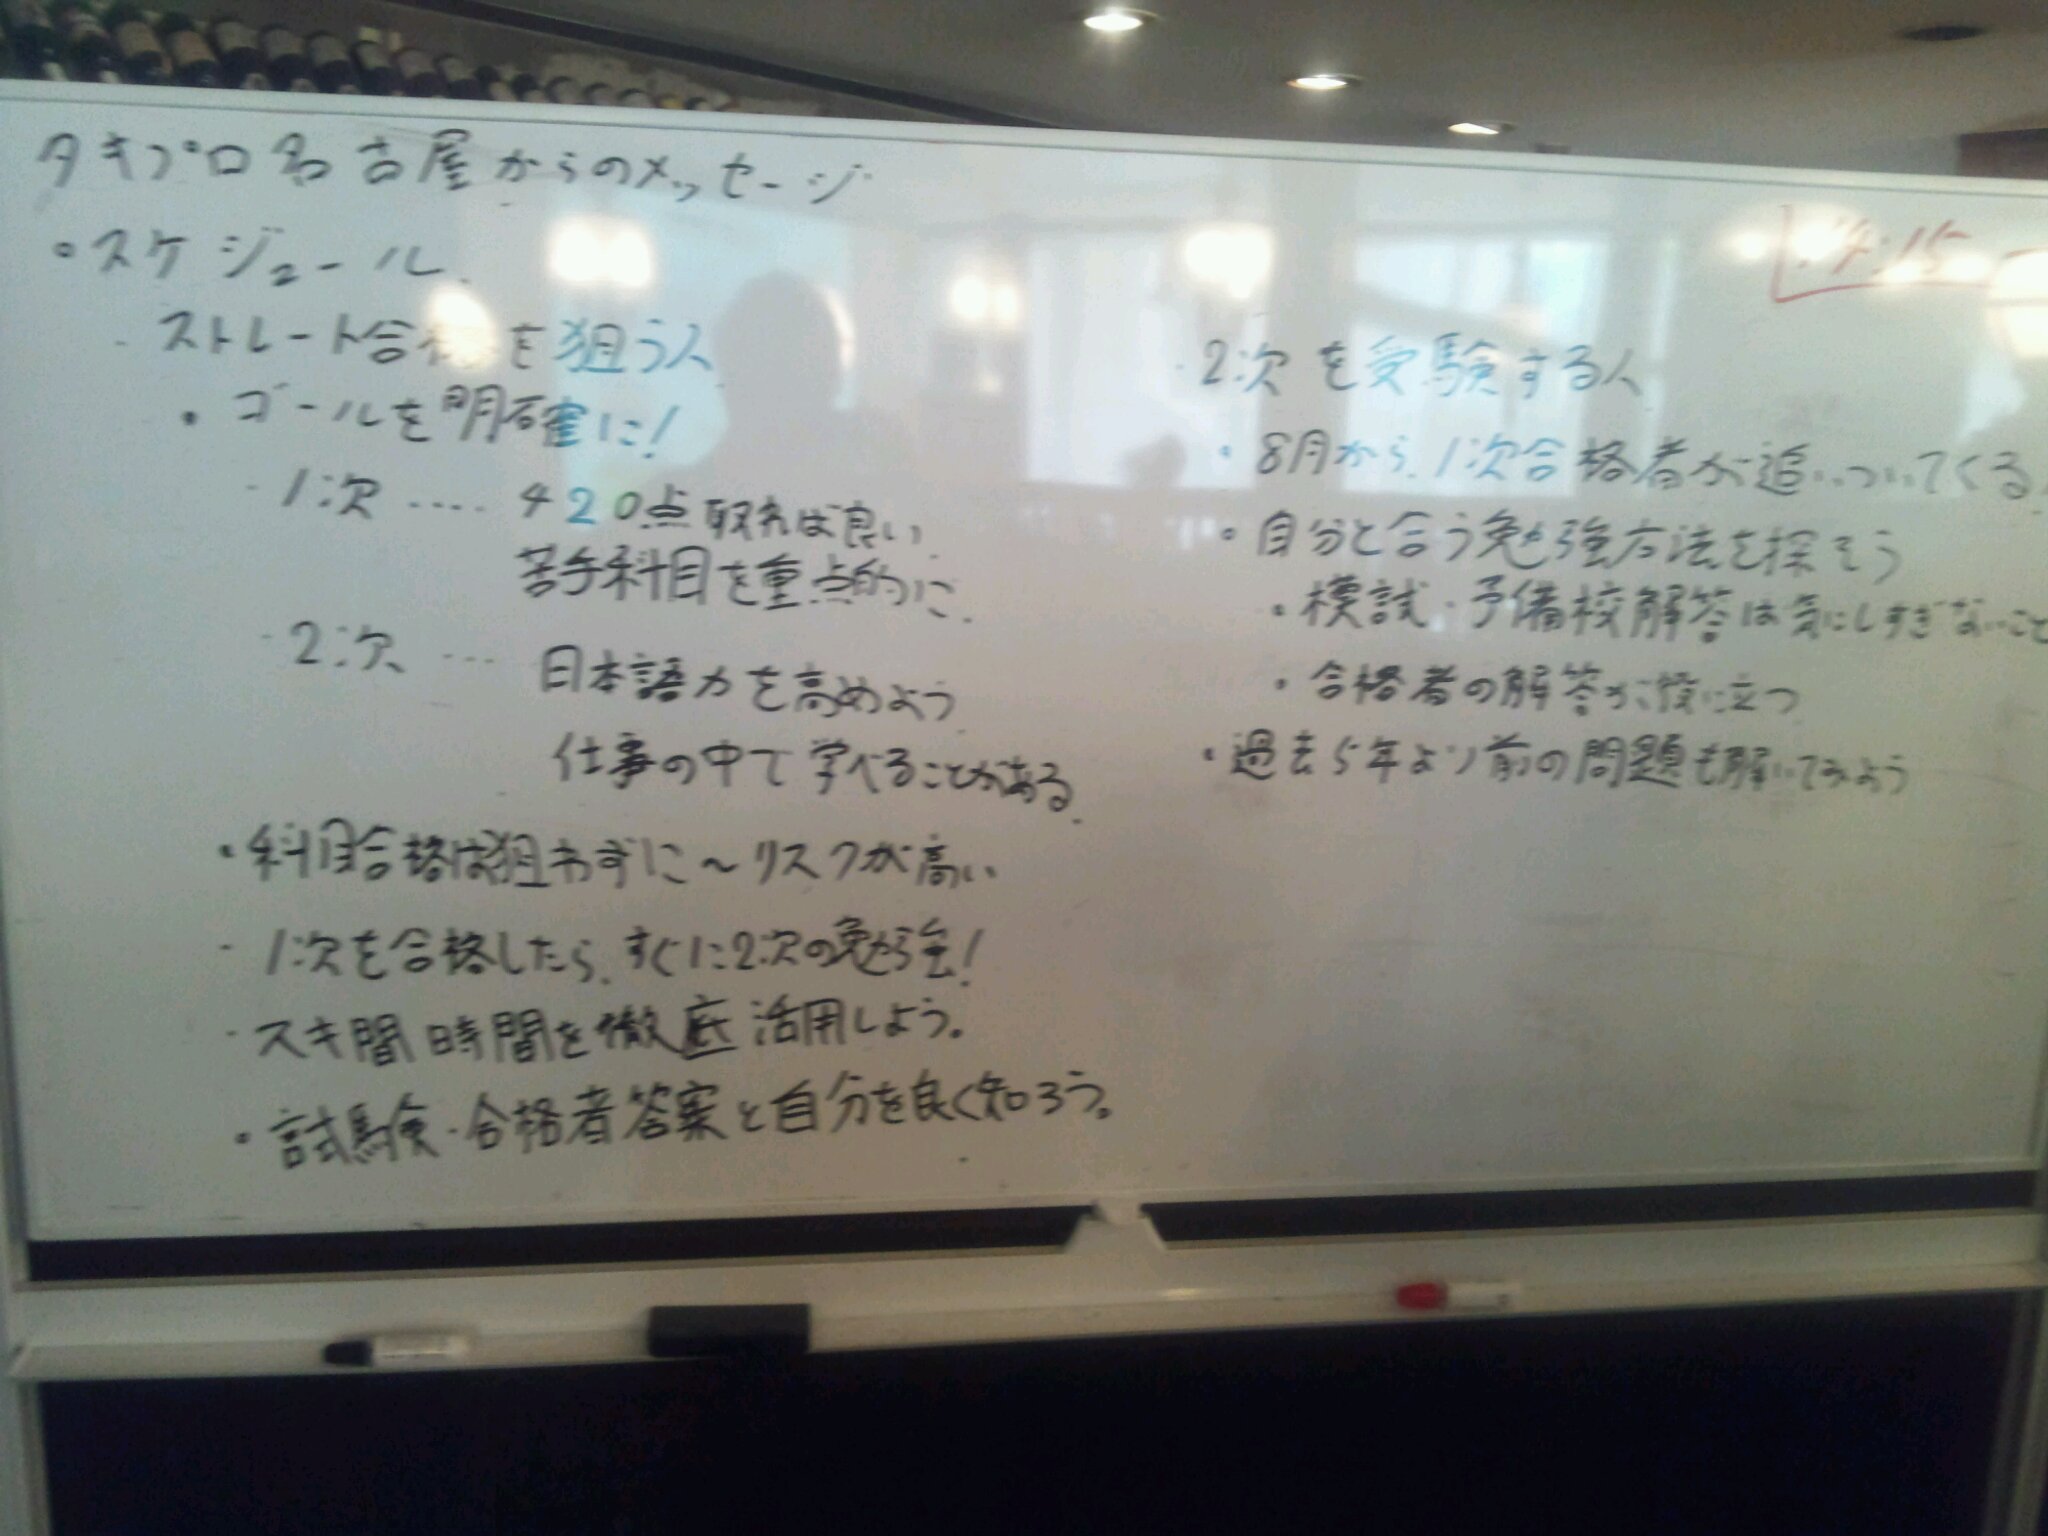 タキプロ名古屋からのメッセージ
• スケジュール
・ストレート合格を狙う人
• ゴールを明確に!
・1次 ‥‥ 420点取れば良い
苦手科目を重点的に.
・2次 … 日本語力を高めよう
仕事の中で学べることがある.
• 科目合格は狙わずに～リスクが高い
・1次を合格したら、すぐに2次の勉強!
・スキ間時間を徹底活用しよう。
• 試験・合格者答案と自分を良く知ろう。
・2次を受験する人
• 8月から、1次合格者が追いついてくる
• 自分と合う勉強方法を探そう
• 模試・予備校解答は気にしすぎないこと
• 合格者の解答が役に立つ
• 過去5年より前の問題も解いてみよう